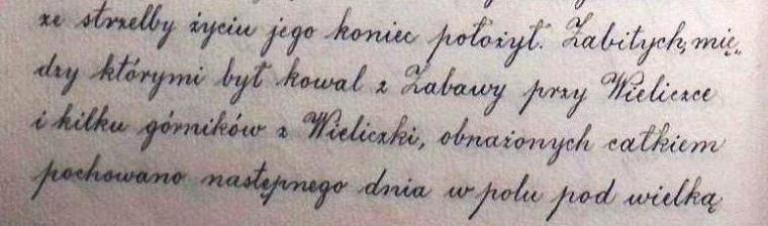 ze strzelby życiu jego koniec położył. Zabitych, mię„
dzy którymi był kowal z Zabawy przy Wieliczce
i kilku górników z Wieliczki, obnażonych całkiem
pochowano następnego dnia w polu pod wielką